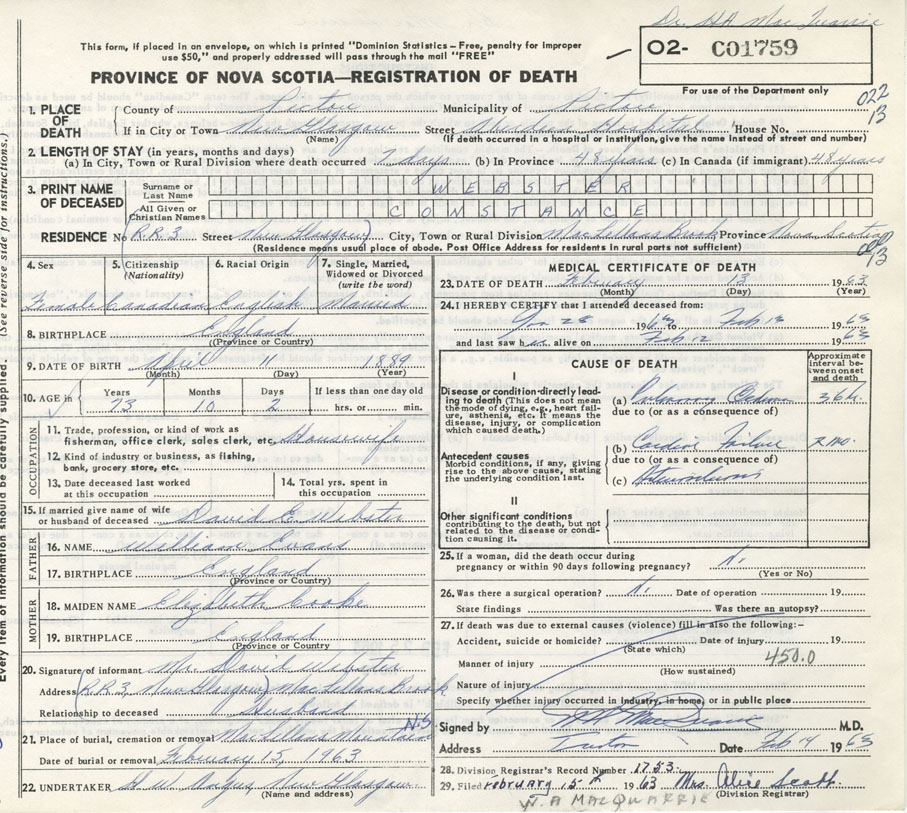 Dr. HA MacQuarrie
This form, if placed in an envelope, on which is printed "Dominion Statistics – Free, penalty for improper
use $50," and properly addressed will pass through the mail "FREE"
O2- C01759
For use of the Department only
PROVINCE OF NOVA SCOTIA—REGISTRATION OF DEATH
022
13
1. PLACE OF DEATH County of Pictou Municipality of Pictou
If in City or Town New Glasgow Street Hospital House No.
(Name) (If death occurred in a hospital or institution, give the name instead of street and number)
2. LENGTH OF STAY (in years, months and days)
(a) In City, Town or Rural Division where death occurred 7 days (b) In Province 48 years (c) In Canada (if immigrant) 48 years
3. PRINT NAME OF DECEASED Surname or Last Name WEBSTER
All Given or Christian Names CONSTANCE
RESIDENCE No R.R.3 Street (New Glasgow) City, Town or Rural Division MacLellans Brook Province Nova Scotia
(Residence means usual place of abode. Post Office Address for residents in rural parts not sufficient)
13
4. Sex 5. Citizenship (Nationality) 6. Racial Origin 7. Single, Married, Widowed or Divorced (write the word)
Female Canadian English Married
8. BIRTHPLACE England
(Province or Country)
9. DATE OF BIRTH April 11 1889
(Month) (Day) (Year)
10. AGE in Years Months Days If less than one day old
73 10 2 hrs. or min.
OCCUPATION
11. Trade, profession, or kind of work as fisherman, office clerk, sales clerk, etc. Housewife
12. Kind of industry or business, as fishing, bank, grocery store, etc.
13. Date deceased last worked at this occupation 14. Total yrs. spent in this occupation
15. If married give name of wife or husband of deceased David E. Webster
FATHER
16. NAME William Evans
17. BIRTHPLACE England
(Province or Country)
MOTHER
18. MAIDEN NAME Elizabeth Cooke
19. BIRTHPLACE England
(Province or Country)
20. Signature of informant Mr. David Webster
Address (R.R.3 New Glasgow) MacLellans Brook
Relationship to deceased Husband
N.S.
21. Place of burial, cremation or removal MacLellans Mountain
Date of burial or removal February 15, 1963
22. UNDERTAKER H. W. Angus, New Glasgow
(Name and address)
MEDICAL CERTIFICATE OF DEATH
23. DATE OF DEATH February 13 1963
(Month) (Day) (Year)
24. I HEREBY CERTIFY that I attended deceased from:
Jan 28 1963 to Feb 13 1963
and last saw her alive on Feb 12 1963
CAUSE OF DEATH
Approximate interval between onset and death
I
Disease or condition directly leading to death (This does not mean the mode of dying, e.g., heart failure, asthenia, etc. It means the disease, injury, or complication which caused death.)
(a) Pulmonary Edema 36 h.
due to (or as a consequence of)
Antecedent causes
Morbid conditions, if any, giving rise to the above cause, stating the underlying condition last.
(b) Cardiac Failure 2 mo.
due to (or as a consequence of)
(c)
II
Other significant conditions
contributing to the death, but not related to the disease or condition causing it.
25. If a woman, did the death occur during pregnancy or within 90 days following pregnancy? No
(Yes or No)
26. Was there a surgical operation? No Date of operation 19
State findings Was there an autopsy?
27. If death was due to external causes (violence) fill in also the following:–
Accident, suicide or homicide? Date of injury 19
(State which)
Manner of injury 450.0
(How sustained)
Nature of injury
Specify whether injury occurred in industry, in home, or in public place
Signed by HA MacQuarrie M.D.
Address Date Feb 14 1963
28. Division Registrar's Record Number 1753.
29. Filed February 15th 1963 Mrs. Alice Scott
(Division Registrar)
W. A MACQUARRIE
Every item of information should be carefully supplied. (See reverse side for instructions.)